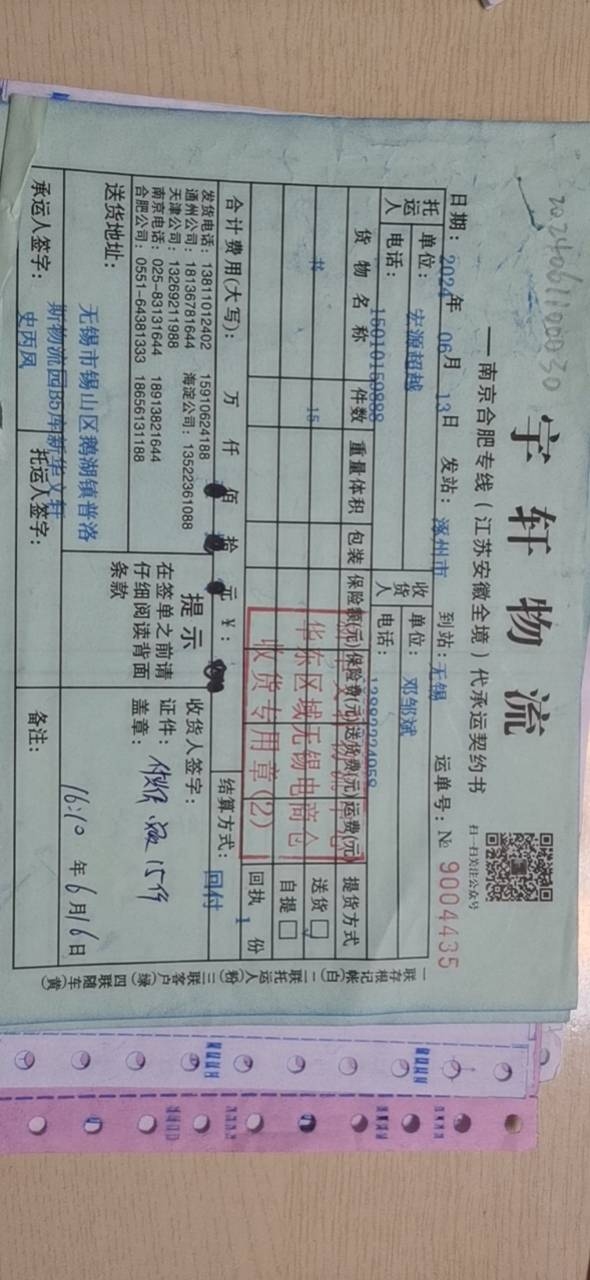 20240611000030
宇轩物流
扫一扫关注公众号
——南京合肥专线(江苏安徽全境)代承运契约书
日期: 2024年 06月 13日 发站: 涿州市 到站: 无锡 运单号: № 9004435
托运人 单位: 宏源超越 收货人 单位: 邓邹斌
电话: 15010150888 电话:
货物名称 件数 重量体积 包装 保险额(元) 保险费(元) 送货费(元) 运费(元) 提货方式
书 15 送货
自提
回执 1 份
华东区域无锡电商仓
收货专用章(2)
合计费用(大写): 万 仟 佰 拾 元 ¥: 结算方式: 回付
发货电话: 13811012402 15910624188
通州公司: 18136781644 海淀公司: 13522361088
天津公司: 13269211988
南京电话: 025-83131644 18913821644
合肥公司: 0551-64381333 18656131188
提示
在签单之前请
仔细阅读背面
条款
收货人签字:
证件:
盖章:
15件
16:10 年 6月16日
送货地址: 无锡市锡山区鹅湖镇普洛
斯物流园B5库新华文轩
承运人签字: 史丙凤 托运人签字: 备注:
一联存根记帐(白) 二联托运人(粉) 三联客户(绿) 四联随车(黄)